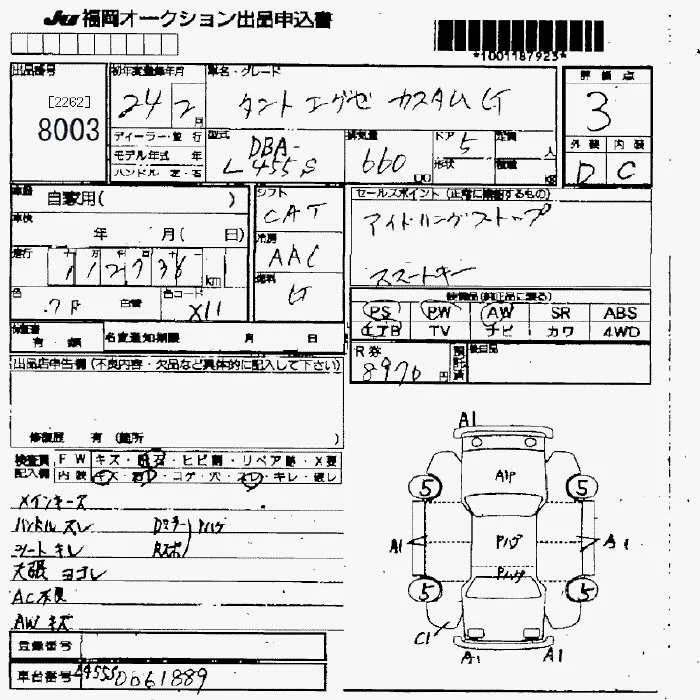 JU 福岡オークション出品申込書
*1001187923*
出品番号
[2262]
8003
初年度登録年月
24 2 月
ディーラー・並行
モデル年式 年
ハンドル 左・右
車名・グレード
タント エグゼ カスタム G
型式
DBA-
L455S
排気量
660
ドア 5
形状
定員 人
積載 KG
評価点
3
外装 内装
D C
車歴 自家用( )
車検
年 月( 日)
走行
112738 km
シフト
CAT
冷房
AAC
燃料
G
色
色コード
X11
有 名変通知期限 月 日
セールスポイント(正常に機能するもの)
アイドリングストップ
スマートキー
装備品(純正品に限る)
PS PW AW SR ABS
エアB TV ナビ カワ 4WD
R券
8970 円
預託済
後日品
出品店申告欄(不良内容・欠品など具体的に記入して下さい)
修復歴 有 (箇所 )
検査員 FW キズ・飛石・ヒビ割・リペア跡・X要
記入欄 内装 キズ・汚れ・コゲ・穴・スレ・キレ・破レ
メインキーズ
ハンドルスレ Dミラー Pハゲ
シートキレ Rスポ
天張ヨゴレ
AC不良
AWキズ
登録番号
車台番号 L455S 0061889
A1
A1P
5 5
A1 Pハゲ A1
Pハゲ
5 5
C1
A1 A1